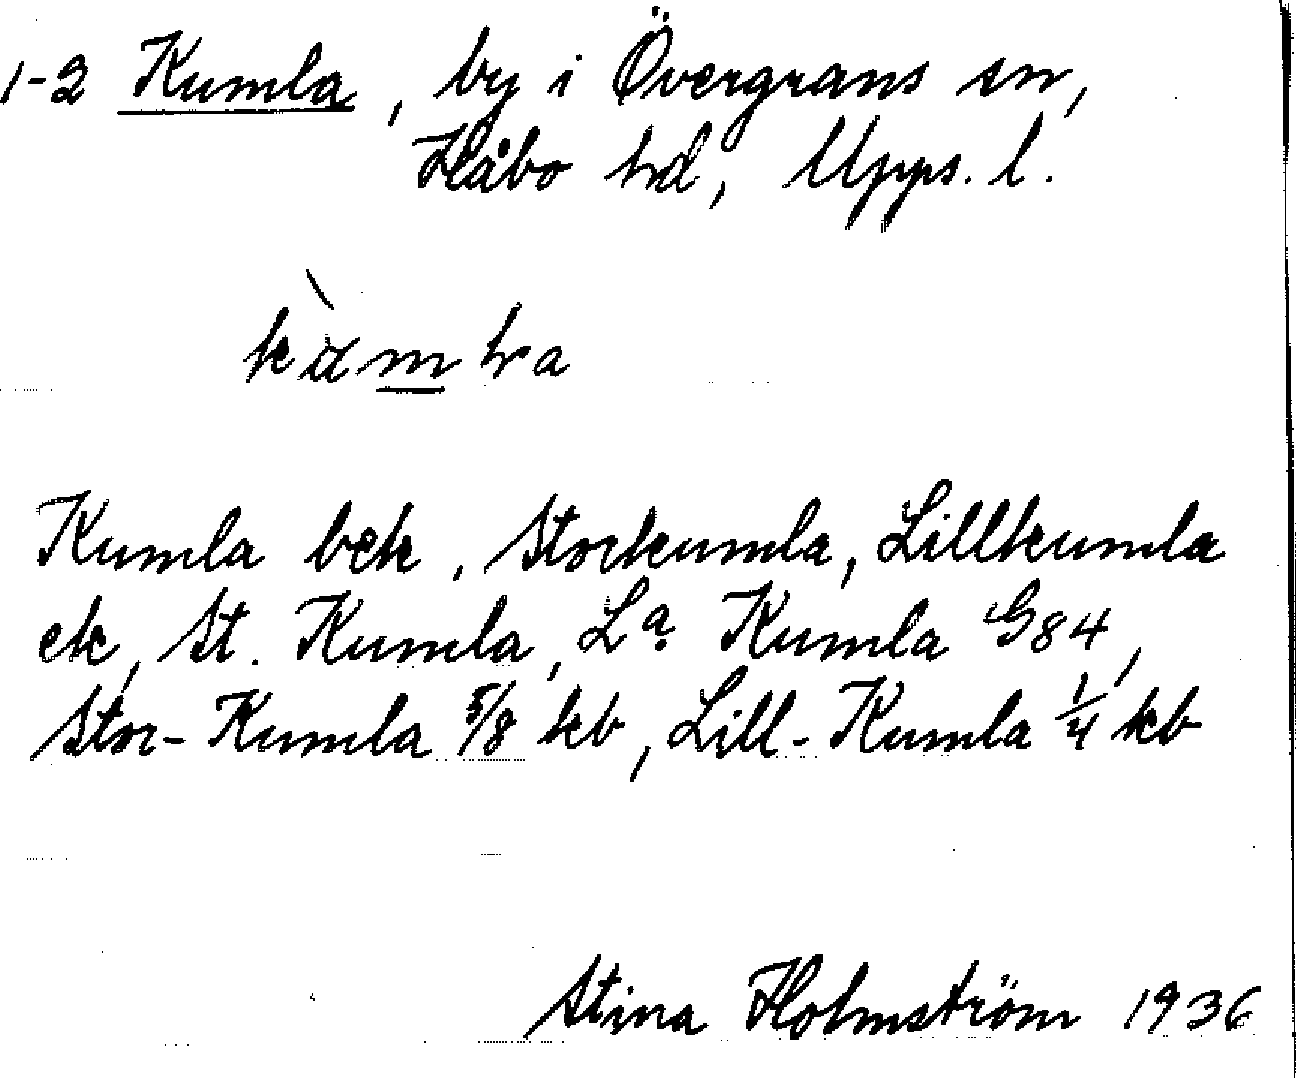 1-2 Kumla, by i Övergrans sn,
Håbo hd, Upps. l.
Kumla bek, Storkumla, Lillkumla
ek, St. Kumla, La Kumla G84,
Stor-Kumla 5/8 kb, Lill-Kumla 1/4 kb
Stina Holmström 1936